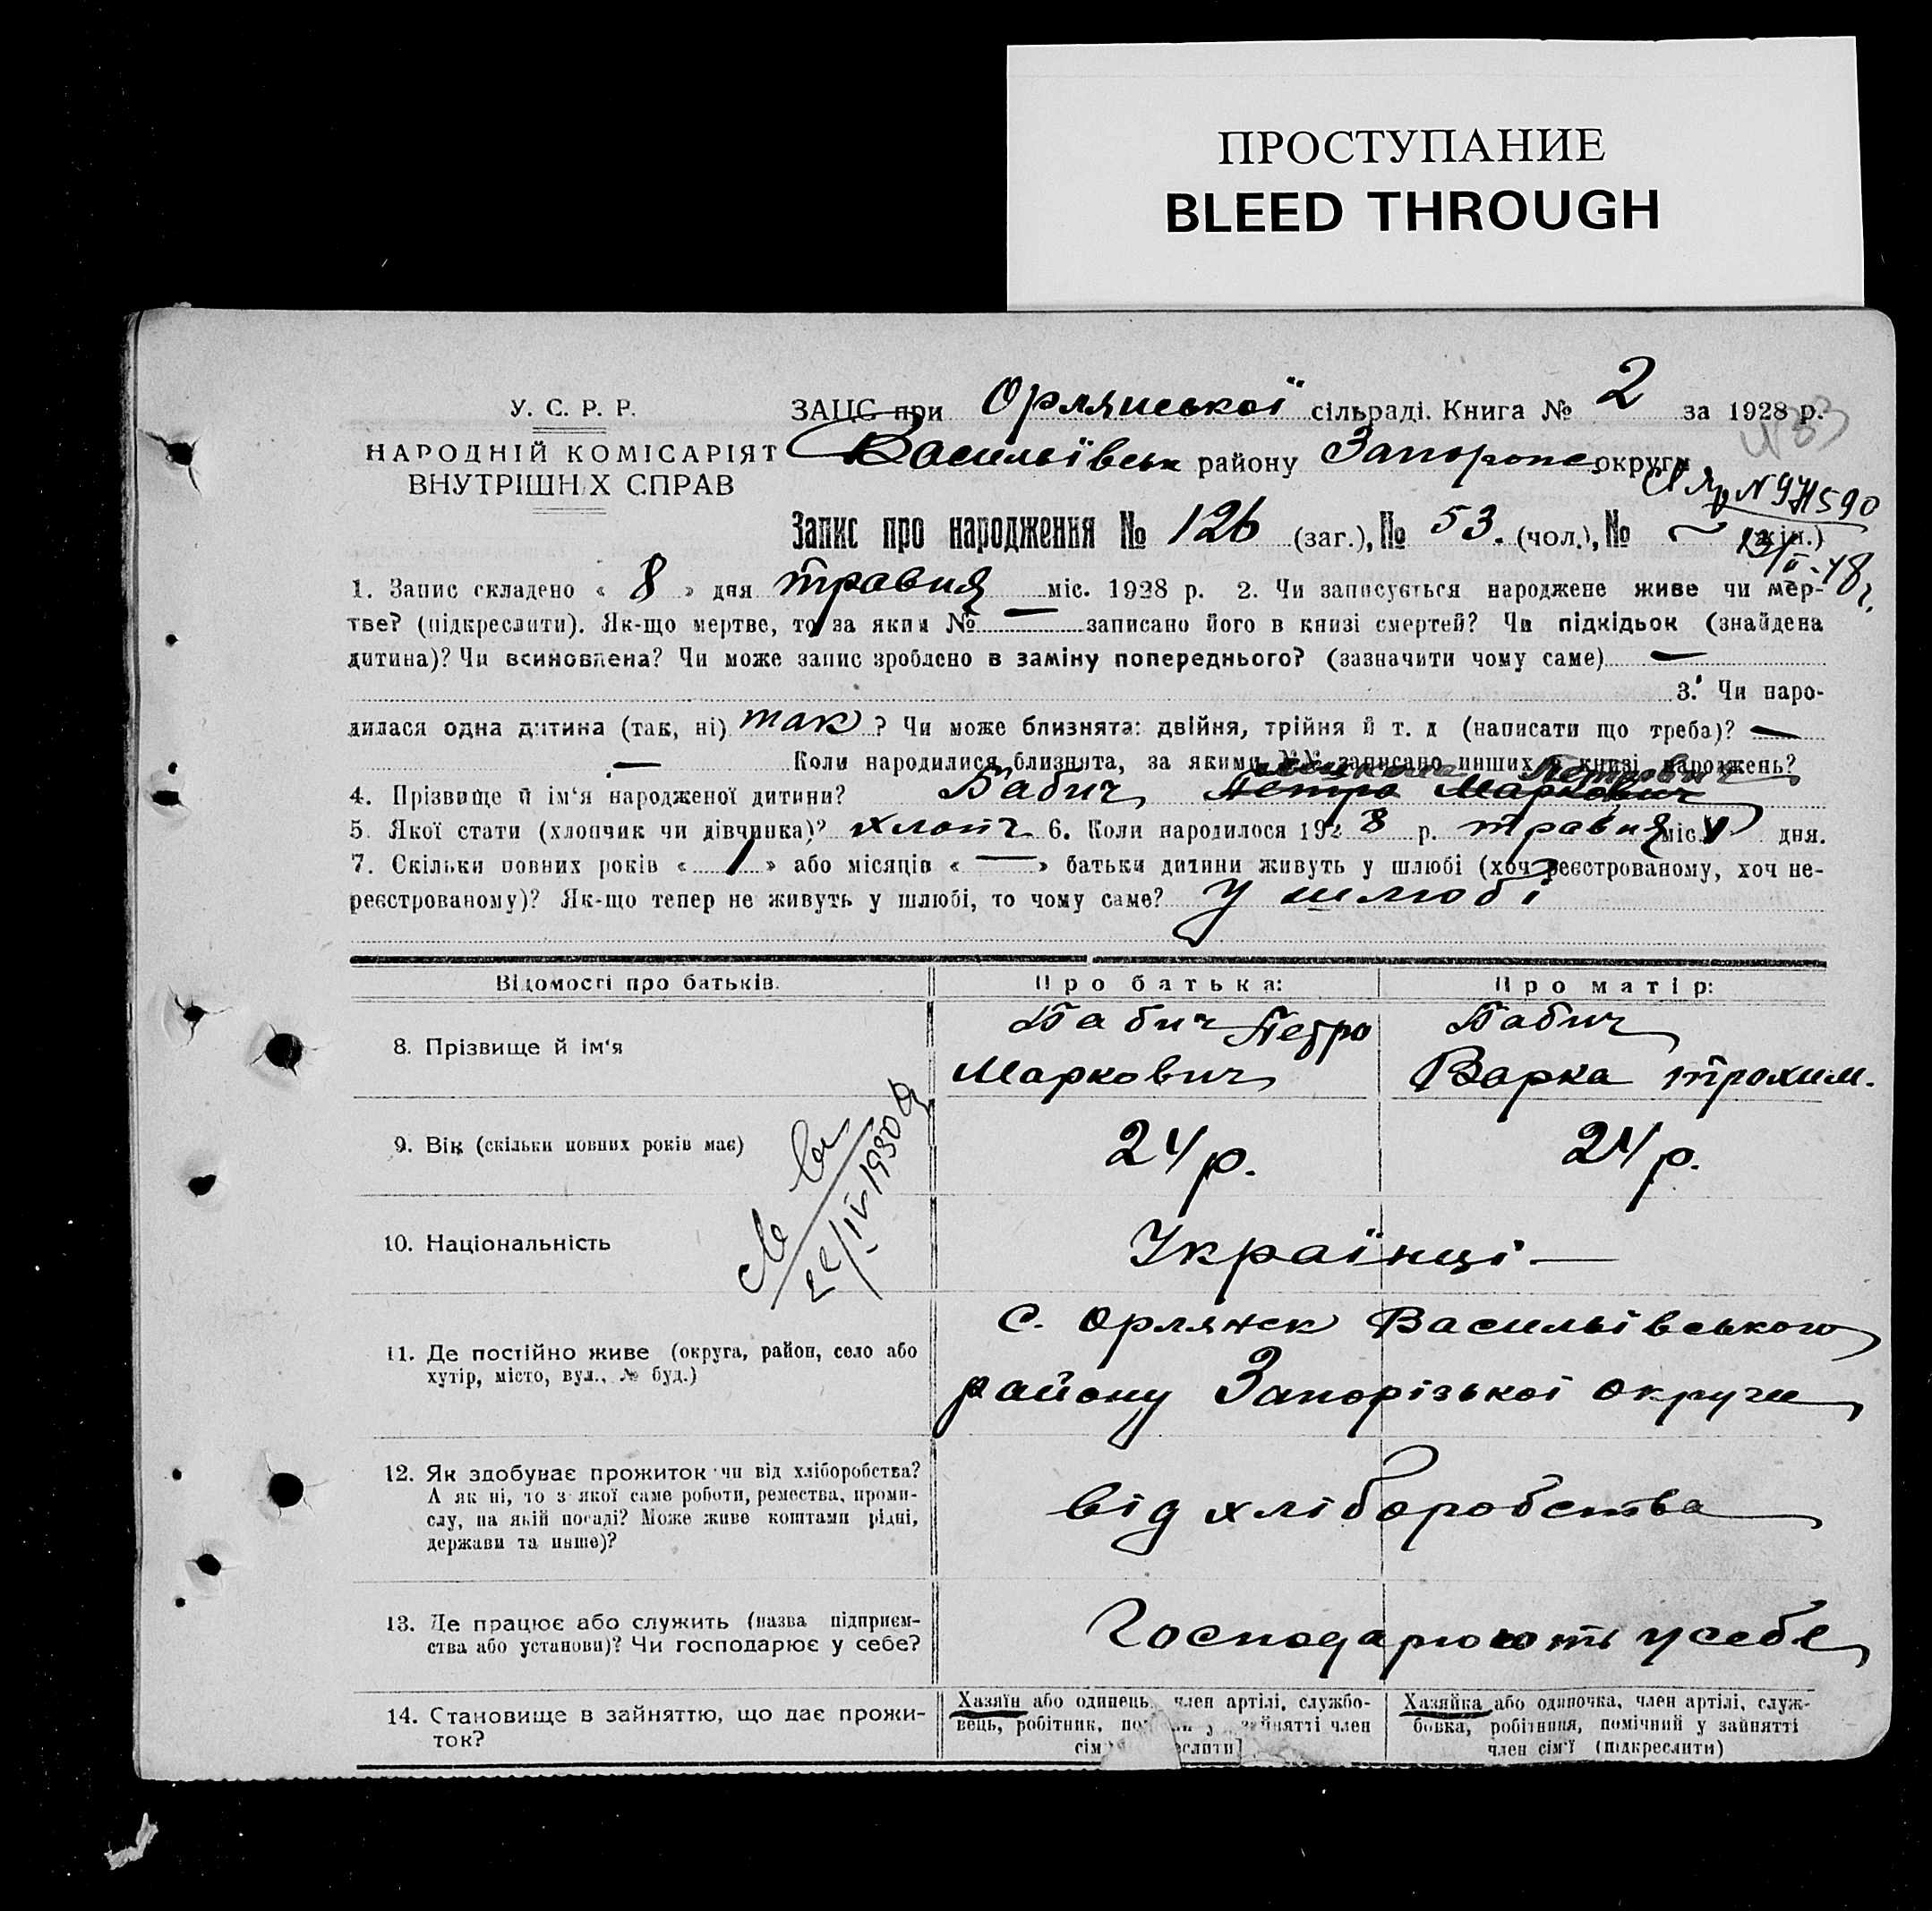 ПРОСТУПАНИЕ
BLEED THROUGH
У. С. Р. Р.
НАРОДНІЙ КОМІСАРІЯТ
ВНУТРІШНІХ СПРАВ
ЗАЦС при Орлянської сільраді. Книга № 2 за 1928 р.
Васильївськ району округи
N 590
Запис про народження № 126 (заг.), № 53. (чол.), № ~ (жін.)
1. Запис складено « 8 » дня травня міс. 1928 р. 2. Чи записується народжене живе чи мер-
тве? (підкреслити). Як-що мертве, то за яким № — записано його в книзі смертей? Чи підкідьок (знайдена
дитина)? Чи всиновлена? Чи може запис зроблено в заміну попереднього? (зазначити чому саме) —
3. Чи наро-
дилася одна дитина (так, ні) так ? Чи може близнята: двійня, трійня й т. д (написати що треба)? —
— Коли народилися близнята, за якими №№ записано инших в книзі народжень?
4. Прізвище й ім'я народженої дитини? Бабич Петро Маркович
Петрович
5. Якої стати (хлопчик чи дівчинка)? хлопч 6. Коли народилося 1928 р. травня міс. дня.
7. Скільки повних років « 1 » або місяців « — » батьки дитини живуть у шлюбі (хоч реєстрованому, хоч не-
реєстрованому)? Як-що тепер не живуть у шлюбі, то чому саме? У шлюбі
Відомості про батьків. Про батька: Про матір:
8. Прізвище й ім'я
Бабич Петро
Маркович
Бабич
Варка трохим.
9. Вік (скільки повних років має) 24 р. 24 р.
10. Національність Українці —
11. Де постійно живе (округа, район, село або
хутір, місто, вул., № буд.)
с. Орлянск Васильївського
району Запорізької округи
12. Як здобуває прожиток чи від хліборобства?
А як ні, то з якої саме роботи, ремества, проми-
слу, на якій посаді? Може живе коштами рідні,
держави та инше)?
від хліборобства
13. Де працює або служить (назва підприєм-
ства або установи)? Чи господарює у себе?
Господарюють у себе
14. Становище в зайняттю, що дає прожи-
ток?
Хазяїн або одинець, член артілі, службо-
вець, робітник, зайнятті член
Хазяйка або одиночка, член артілі, служ-
бовка, робітниця, помічний у зайнятті
член сім'ї (підкреслити)